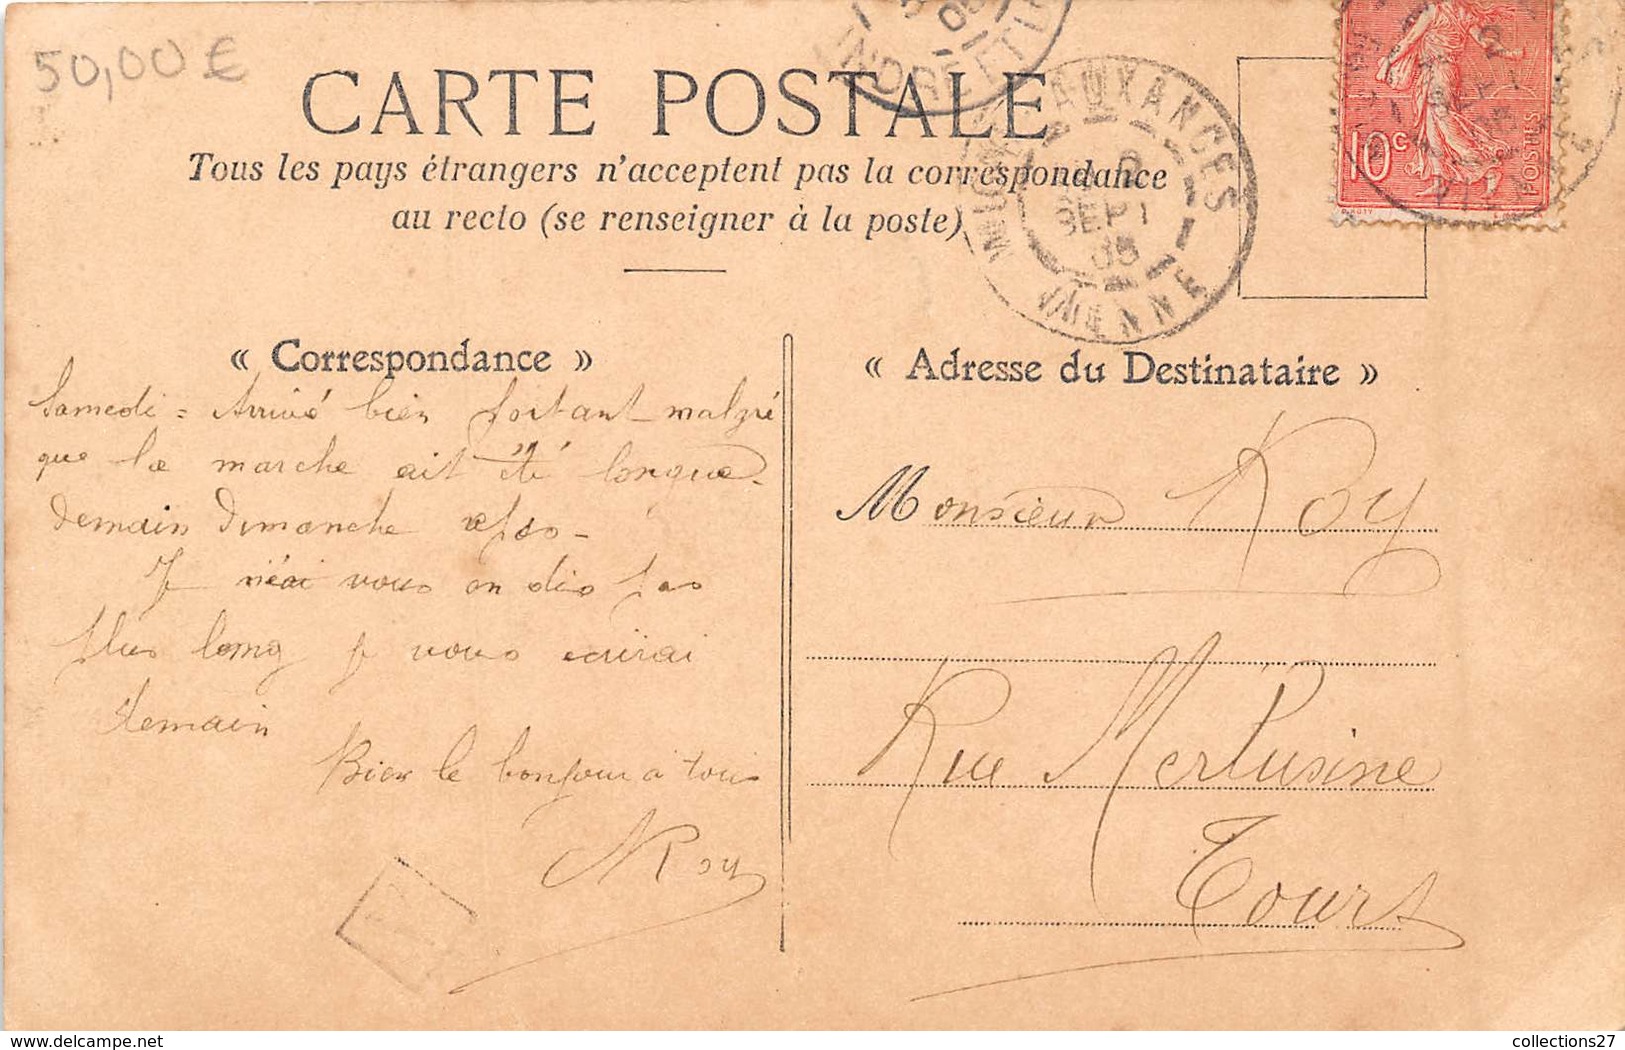 50,00 €
CARTE POSTALE
Tous les pays étrangers n'acceptent pas la correspondance
au recto (se renseigner à la poste)
INDRE ET
AUXANCES
SEPT
05
VIENNE
10c
POSTES
« Correspondance »
Samedi = Arrivé bien portant malgré
que la marche ait été longue.
demain Dimanche repos -
Je vous en dis pas
plus long je vous écrirai
demain
Bien le bonjour à tous
Roy
« Adresse du Destinataire »
Monsieur Roy
Rue Merlusine
Tours
delcampe.net
collections27